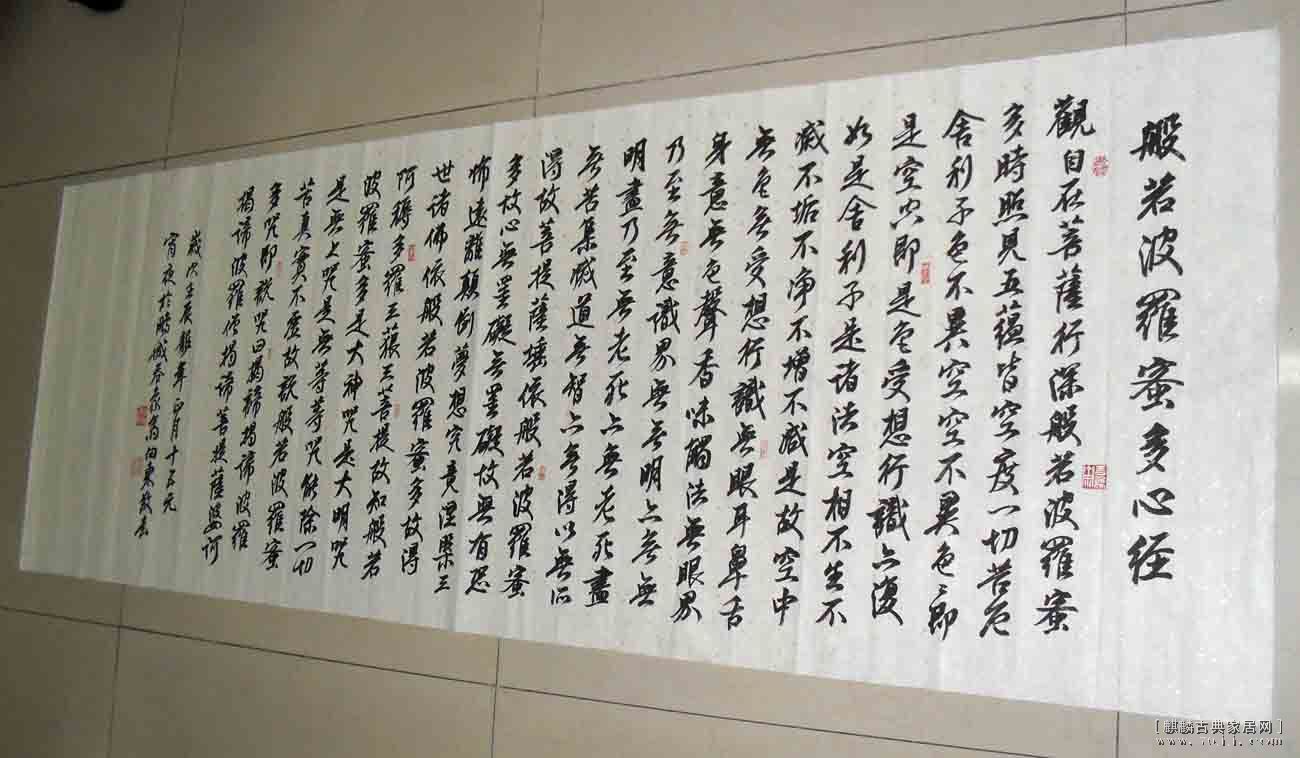 般若波羅蜜多心経
觀自在菩薩行深般若波羅蜜
多時照見五蘊皆空度一切苦厄
舍利子色不異空空不異色色即
是空空即是色受想行識亦復
如是舍利子是諸法空相不生不
滅不垢不净不增不減是故空中
無色無受想行識無眼耳鼻舌
身意無色聲香味觸法無眼界
乃至無意識界無無明亦無無
明盡乃至無老死亦無老死盡
無苦集滅道無智亦無得以無所
得故菩提薩埵依般若波羅蜜
多故心無罣礙無罣礙故無有恐
怖遠離顛倒夢想究竟涅槃三
世诸佛依般若波羅蜜多故得
阿耨多羅三藐三菩提故知般若
波羅蜜多是大神咒是大明咒
是無上咒是無等等咒能除一切
苦真實不虛故說般若波羅蜜
多咒即說咒曰揭諦揭諦波羅
揭諦波羅僧揭諦菩提薩婆訶
歲次壬辰龍年正月十五元
宵夜於
[麒麟古典家居网]